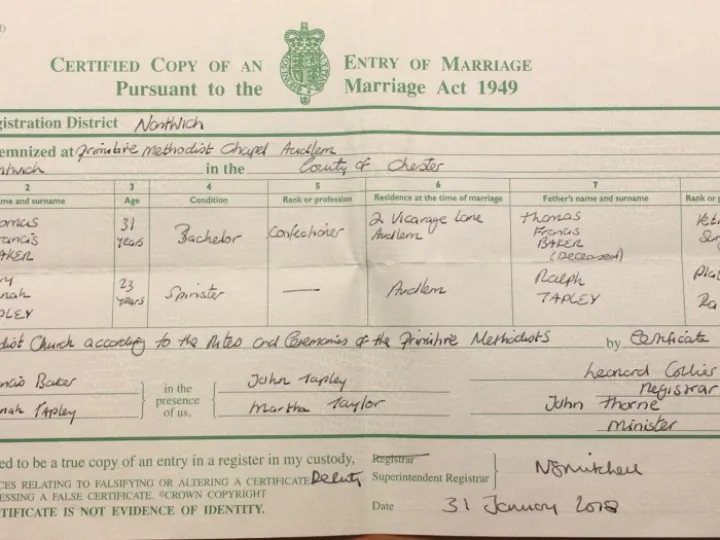 CERTIFIED COPY OF AN ENTRY OF MARRIAGE
Pursuant to the Marriage Act 1949
gistration District Nantwich
emnized at Primitive Methodist Chapel Audlem
ntwich in the County of Chester
2 3 4 5 6 7
me and surname Age Condition Rank or profession Residence at the time of marriage Father's name and surname Rank or p
omas 31 2 Vicarage Lane Thomas
ancis years Bachelor Confectioner Audlem Francis
AKER BAKER
(Deceased)
ry 23 Ralph Plat
nah years Spinster — Audlem TAPLEY
PLEY
dist Church according to the Rites and Ceremonies of the Primitive Methodists by Certificate
ncis Baker in the presence of us, John Tapley Leonard Collier
Registrar
nah Tapley Martha Taylor John Thorne
Minister
ed to be a true copy of an entry in a register in my custody, Registrar
CES RELATING TO FALSIFYING OR ALTERING A CERTIFICATE Deputy Superintendent Registrar
ESSING A FALSE CERTIFICATE. ©CROWN COPYRIGHT
TIFICATE IS NOT EVIDENCE OF IDENTITY. Date 31 January 2018